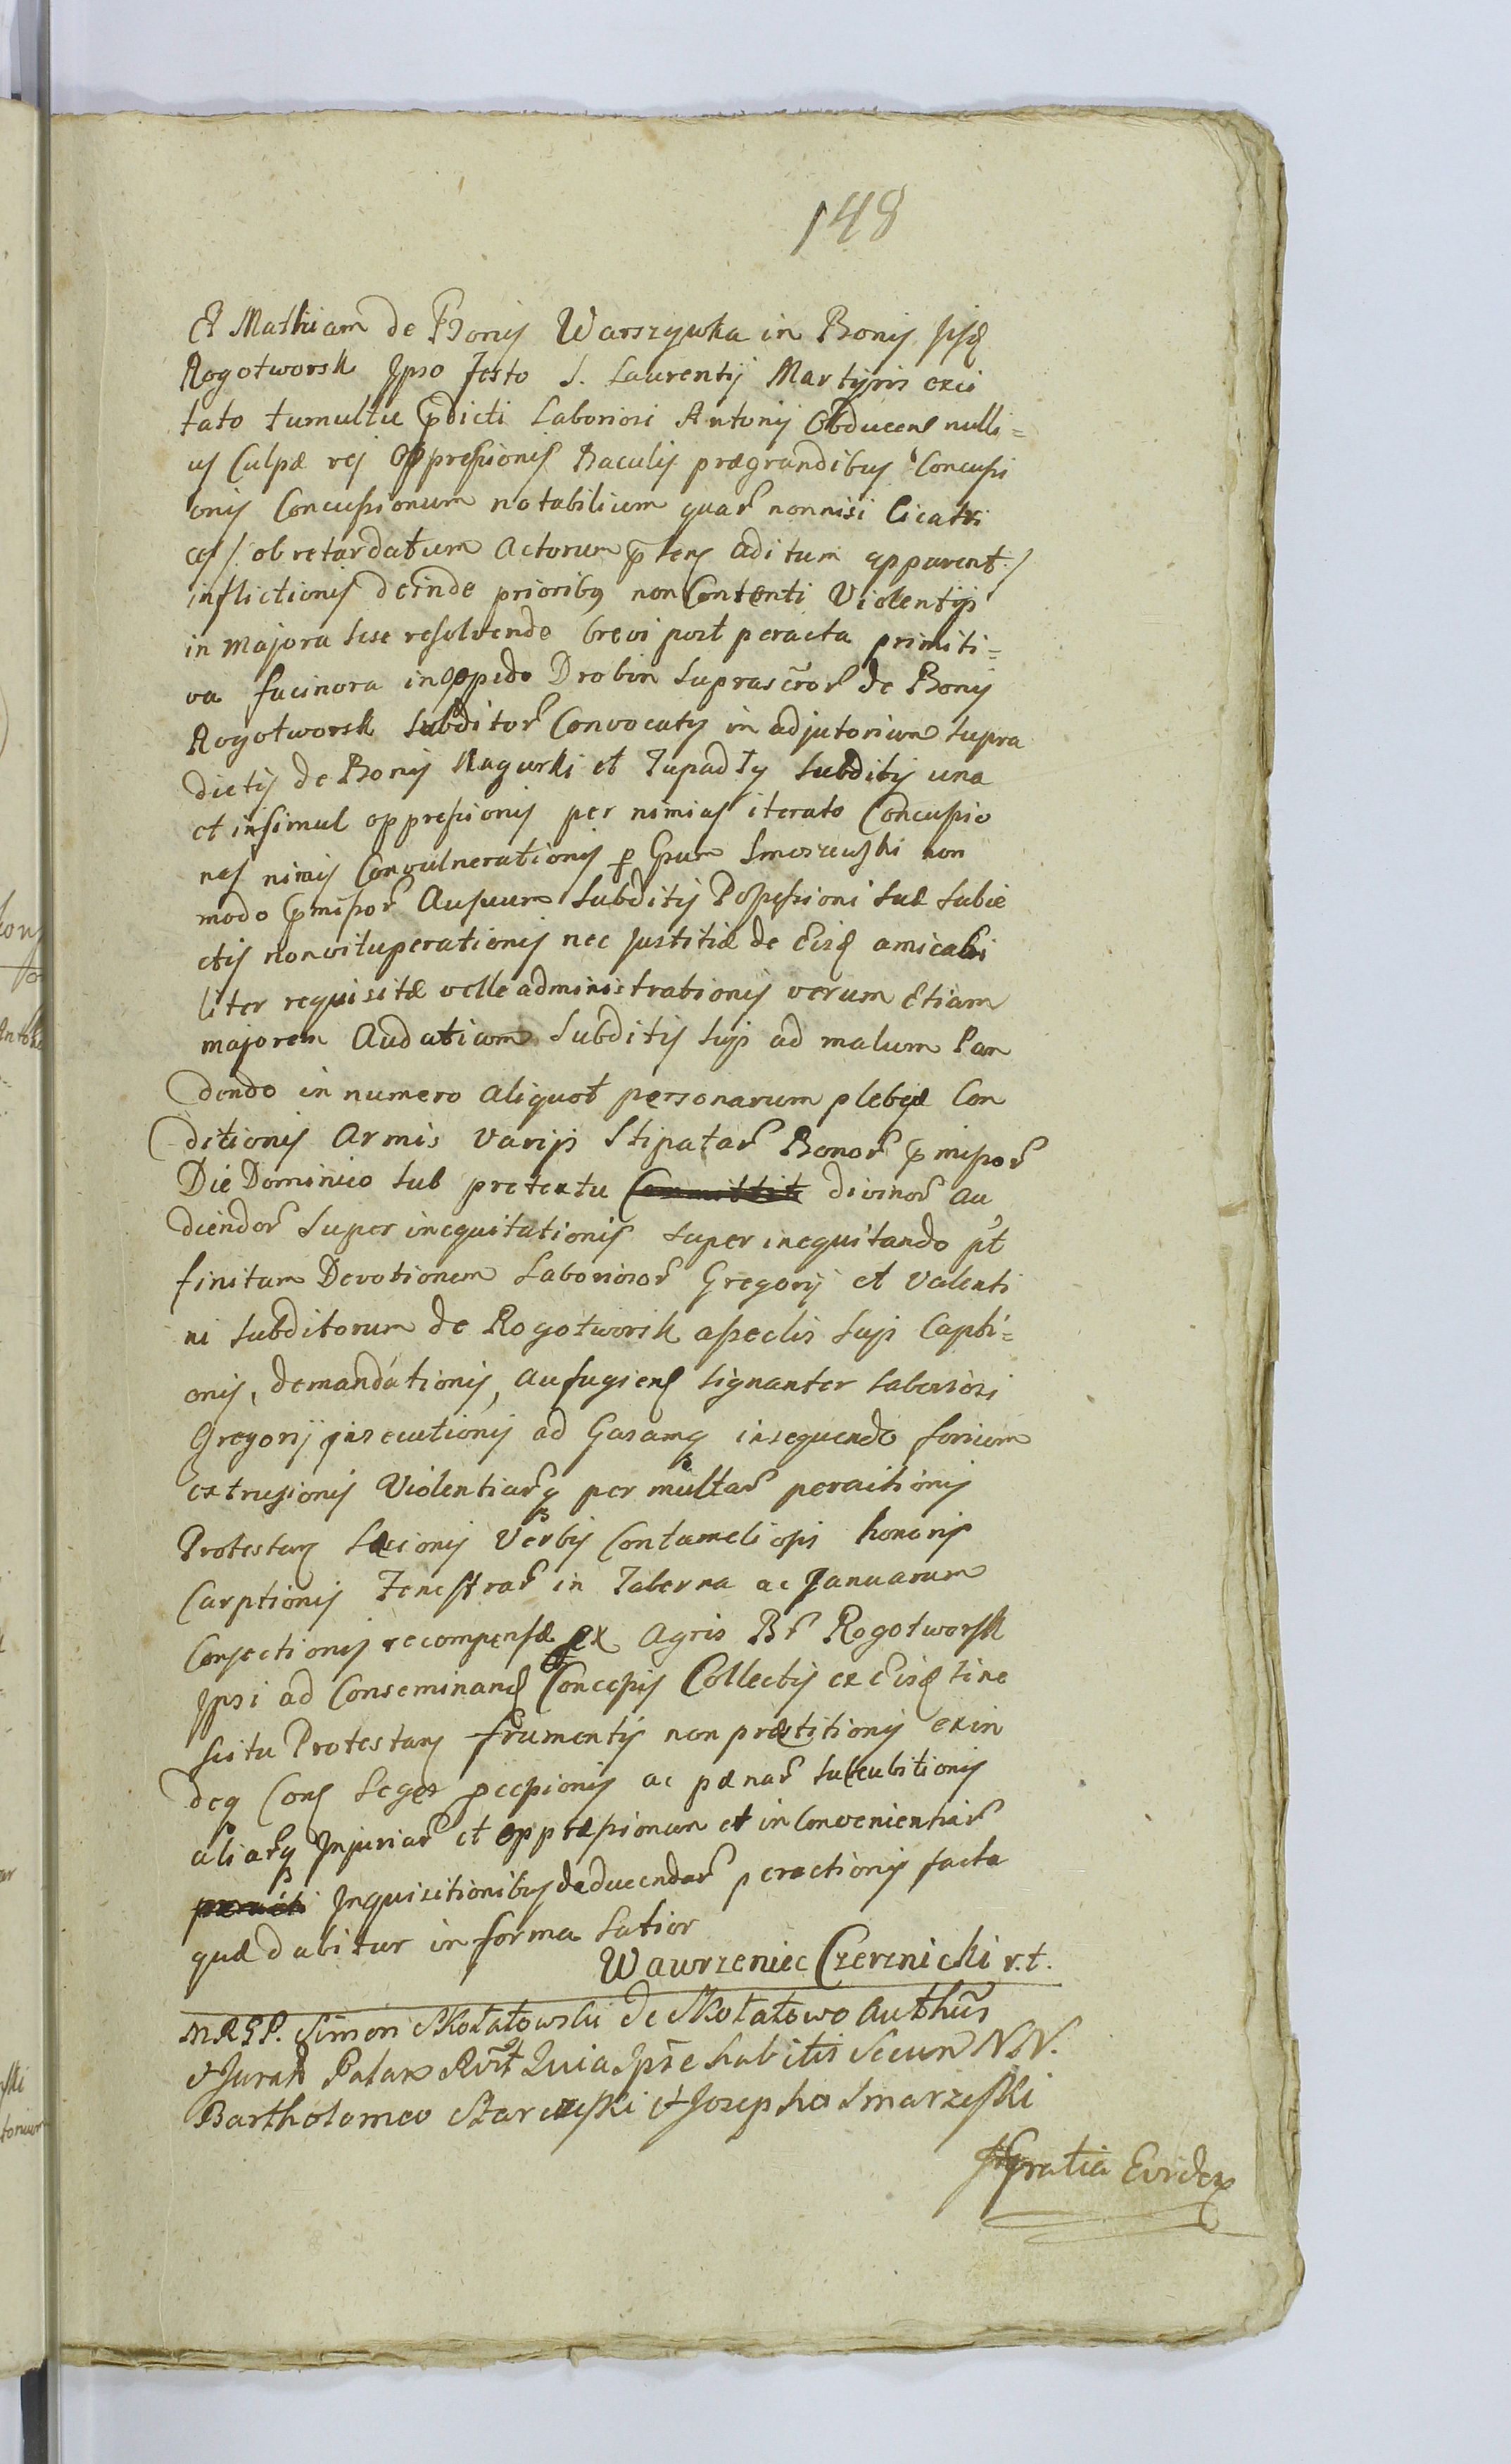 148
Et Mathiam de Bonis Warszywka in Bonis
Rogotworsk Ipso Festo S. Laurentij Martyris exci
tato tumultu pdicti Laboriosi Antonij Obducens nulli=
us Culpæ rei Oppressionis Baculis prægrandibus Concussi
onis Concussionum notabilium quar nonnisi Cicatri
ces /: ob retardatum Actorum aditum apparent :/
inflictionis deinde prioribus non Contenti Violentijs
in majora sese resolvendo brevi post peracta primiti=
va facinora in Oppido Drobin suprascror de Bonis
Rogotworsk Subditor Convocatis in adjutorium supra
dictis de Bonis Nagurki et Łupadły Subditis una
et insimul oppressionis per nimias iterato Concussio
nes nimis Convulnerationis p Gsum Smoszewski non
modo pmissor Ausuum Subditis Possessioni suæ subie
ctis non vituperationis nec Justitiæ de Eisd amicabi
liter requisitæ velle administrationis verum Etiam
majorem Audatiam Subditis suis ad malum Pan
dendo in numero aliquot personarum plebeæ Con
ditionis Armis Varijs Stipatar Bonor pmissor
Die Dominico sub pretextu divinor au
diendor super inequitationis super inequitando pt
finitam Devotionem Laboriosor Gregorij et Valenti
ni subditorum de Rogotworsk asseclis suis Capti=
onis, demandationis, aufugiens signanter Laboriosi
Gregorij insecutionis ad Gazamq insequendo forium
extrusionis Violentiarq per multar peractionis
Protestans Læsionis Verbis Contumeliosis honoris
Carptionis Fenestrar in Taberna ac Januarum
Consectionis recompensæ ex Agris Br Rogotworsk
Ipsi ad Conseminand Concessis Collectis ex Eisd
situ Protestans frumentis non præstitionis exin
deq Cons Leges pcessionis ac pænar succubitionis
aliarq Injuriar et oppressionum et inconvenientiar
Inquisitionibus deducendar peractionis facta
quæ dabitur in forma Latior
Wawrzeniec Czerznicki r.t.
MRGP. Simon Skołatowski de Skołatowo Authus
et Jurat Palat Quia Ipse habitis secum NN.
Bartholomeo Starczeski et Josepho Smarzeski
Gratia